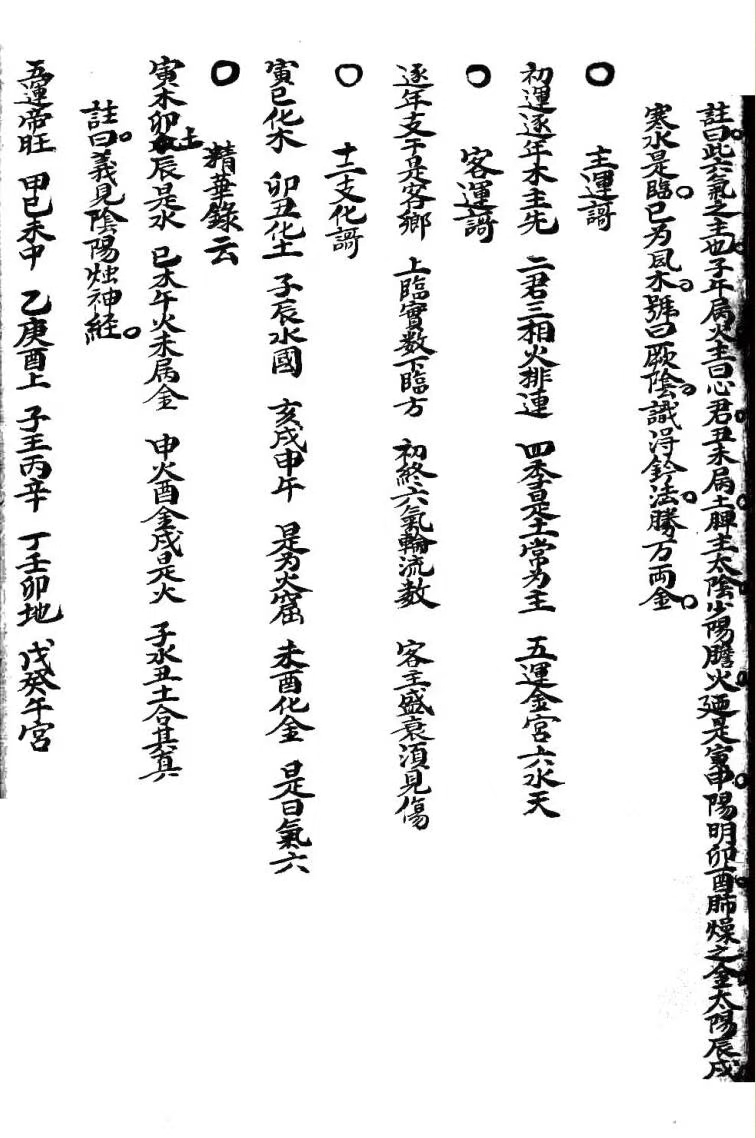 註曰此六氣之主也子午属火主曰心君丑未属土脾主太陰少陽膽火廼是寅申陽明卯酉肺燥之金太陽辰戌
寒水是臨巳为風木號曰厥陰識得鈐法勝万両金
〇 主運謌
初運逐年木主先 二君三相火排連 四季是土常为主 五運金宮六水天
〇 客運謌
逐年支干是客鄉 上臨實数下臨方 初終六氣輪流数 客主盛衰須見傷
〇 十二支化謌
寅巳化木 卯丑化土 子辰水國 亥戌申午 是为火窟 未酉化金 是曰氣六
〇 精華錄云
寅木卯土辰是水 巳木午火未属金 申火酉金戌是火 子水丑土合其真
註曰義見陰陽燭神経
五運帝旺 甲己未中 乙庚酉上 子王丙辛 丁壬卯地 戊癸午宮